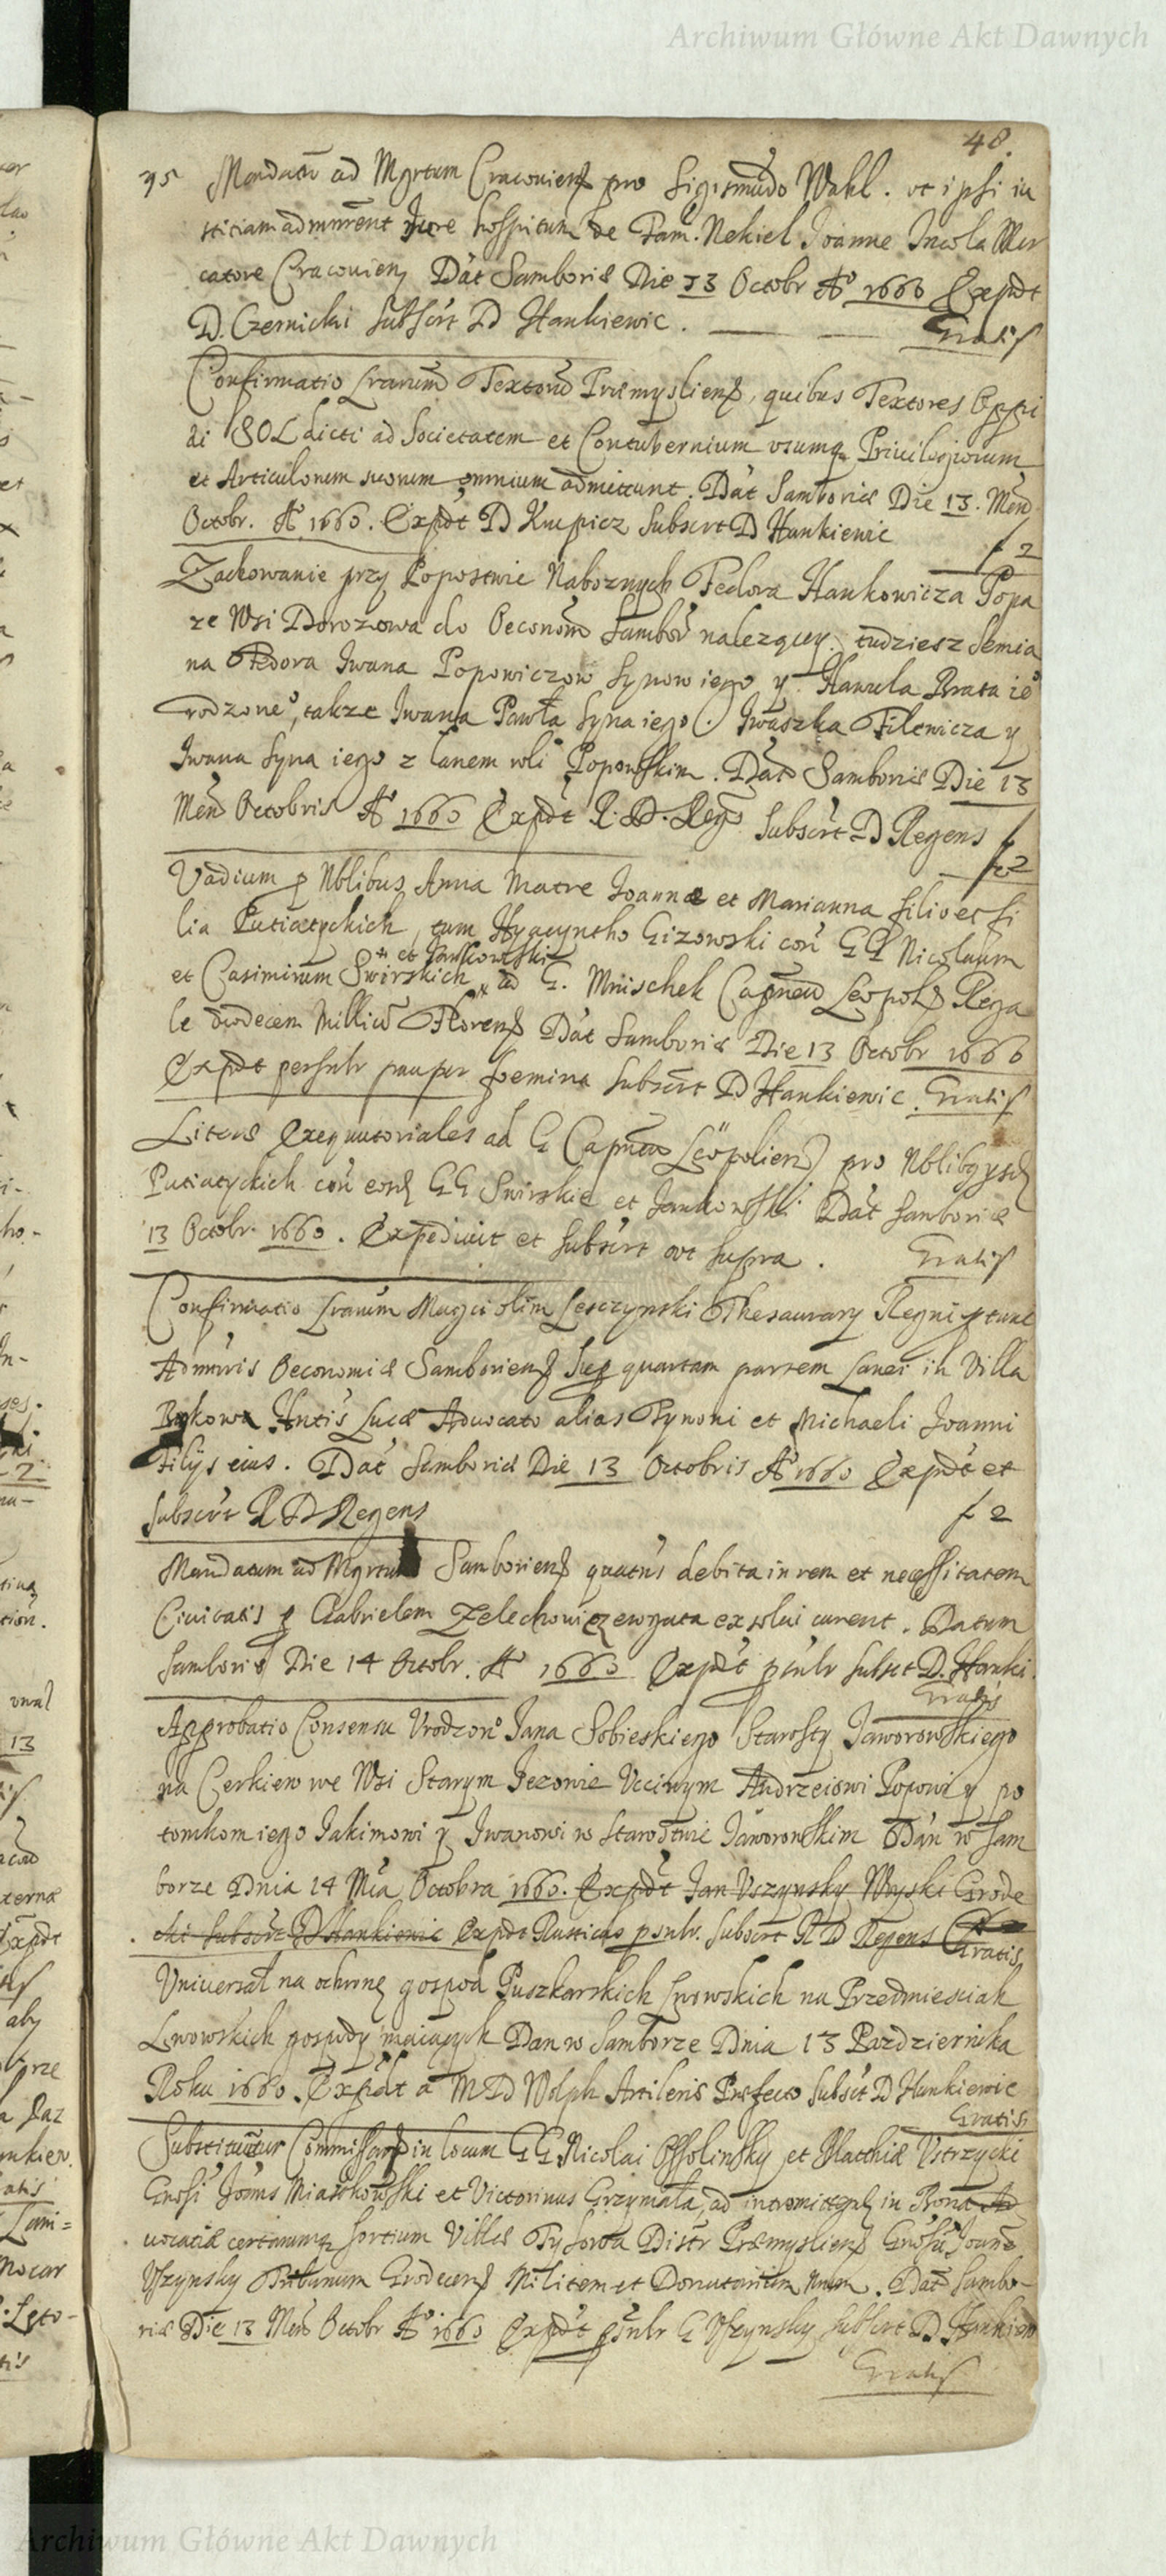 Archiwum Główne Akt Dawnych
48.
Mandatū ad Mgrtum Cracouiens pro Sigismūdo Wahl. vt ipsi iu
stitiam admnrent Jure hospitum de Fam. Nekiel Joanne Incola Mer
catore Cracouien, Dāt Samboriæ Die 13 Octobr A° 1660 Expdt
D. Czernicki Subscrt D Hankiewic. Gratis
Confirmatio Lrarum Textorū Præmysliens, quibus Textores Oppi
di SOL dicti ad Societatem et Contubernium vsumq Priuilegiorum
et Articulorum suorum omnium admittunt. Dāt Samboriæ Die 13. Mens
Octobr. A° 1660. Expdt D Krupicz Subscrt D Hankiewic
f 2
Zachowanie przy Popostwie Naboznych Fedora Hankowicza Popa
ze Wsi Dorozowa do Oeconom Sambor nalezącey. tudziesz Semia
na Fedora Iwana Popowiczow Synow iego y Hawrela Brata ie°
rodzone°, takze Iwana Pawła Syna iego. Iwaszka Filewicza y
Iwana Syna iego z Lanem roli Popowskim. Datō Samboriæ Die 13
Mens Octobris A° 1660 Expdt R. D. Regs Subscrt D Regens
f 2
Vadium p Nblibus Anna Matre Joannæ et Marianna filio et fi
lia Putiatyckich, tum Hyacyntho Gizowski con GG Nicolaum
et Jankowski
et Casimirum Swirskich ad G. Mnischek Capneū Leopols Rega
le duodecem Milliū Florens Dāt Samboriæ Die 13 Octobr 1660
Expdt persnlr pauper foemina Subscrt D Hankiewic. Gratis
Literæ Exequutoriales ad G Capneū Leopolien pro Nblibg ysd
Putiatyckich con eosd GG Swirskie et Jankowski Dāt Samboriæ
13 Octobr. 1660. Expediuit et Subscrt vt supra. Gratis
Confirmatio Lrarum Mugci olim Lesczynski Thesaurary Regni p tunc
Admnris Oeconomiæ Samboriens Sup quartam partem Lanei in Villa
Bykowa Hntis Lucæ Aduocato alias Tynoni et Michaeli Joanni
Filijs eius. Dāt Samboriæ Die 13 Octobris A° 1660 Expdt et
Subscrt R D Regens f 2
Mandatum ad Mgrtum Samboriens quatns debita in rem et necessitatem
Ciuitatis p Gabrielem Zelechowicz erogata exsolui curent. Datum
Samboriæ Die 14 Octobr. A° 1660 Expdt psnlr Subsct D. Hanki.
Gratis
Approbatio Consensu Vrodzon° Jana Sobieskiego Starosty Jaworowskiego
na Cerkiew we Wsi Starym Jezowie Vccinym Andrzeiowi Popowi y po
tomkom iego Jakimowi y Iwanowi w Starostwie Jaworowskim Dan w Sam
borze Dnia 14 Mca Octobra 1660. Expdt Jan Vszynsky Woyski Grode
cki Subscrt D Hankiewic Expdt Rusticus psnlr. Subscrt R D Regens Gratis
Uniuersał na ochronę gospod Puszkarskich Lwowskich na Przedmiesciah
Lwowskich gospody maiących Dan w Samborze Dnia 13 Pazdziernika
Roku 1660. Expdt a MD Wolph Artileriæ Præfecto Subsct D Hankiewic
Gratis
Substituūtur Commissarij in locum GG Nicolai Ossolinsky et Matthiæ Vstrzycki
Gnosi Joans Miaskowski et Victorinus Grzymała, ad intromittend in Bona Ad
uocatiæ certarumq sortium Villæ Tysowa Distr Præmysliens Gnosū Joanē
Vszynsky Tribunum Grodecens Militem et Donatarium nrum. Dat Sambo-
riæ Die 13 Mens Octobr A° 1660 Expdt psnlr G Vszynsky Subscrt D Hankiew
Gratis
Archiwum Główne Akt Dawnych